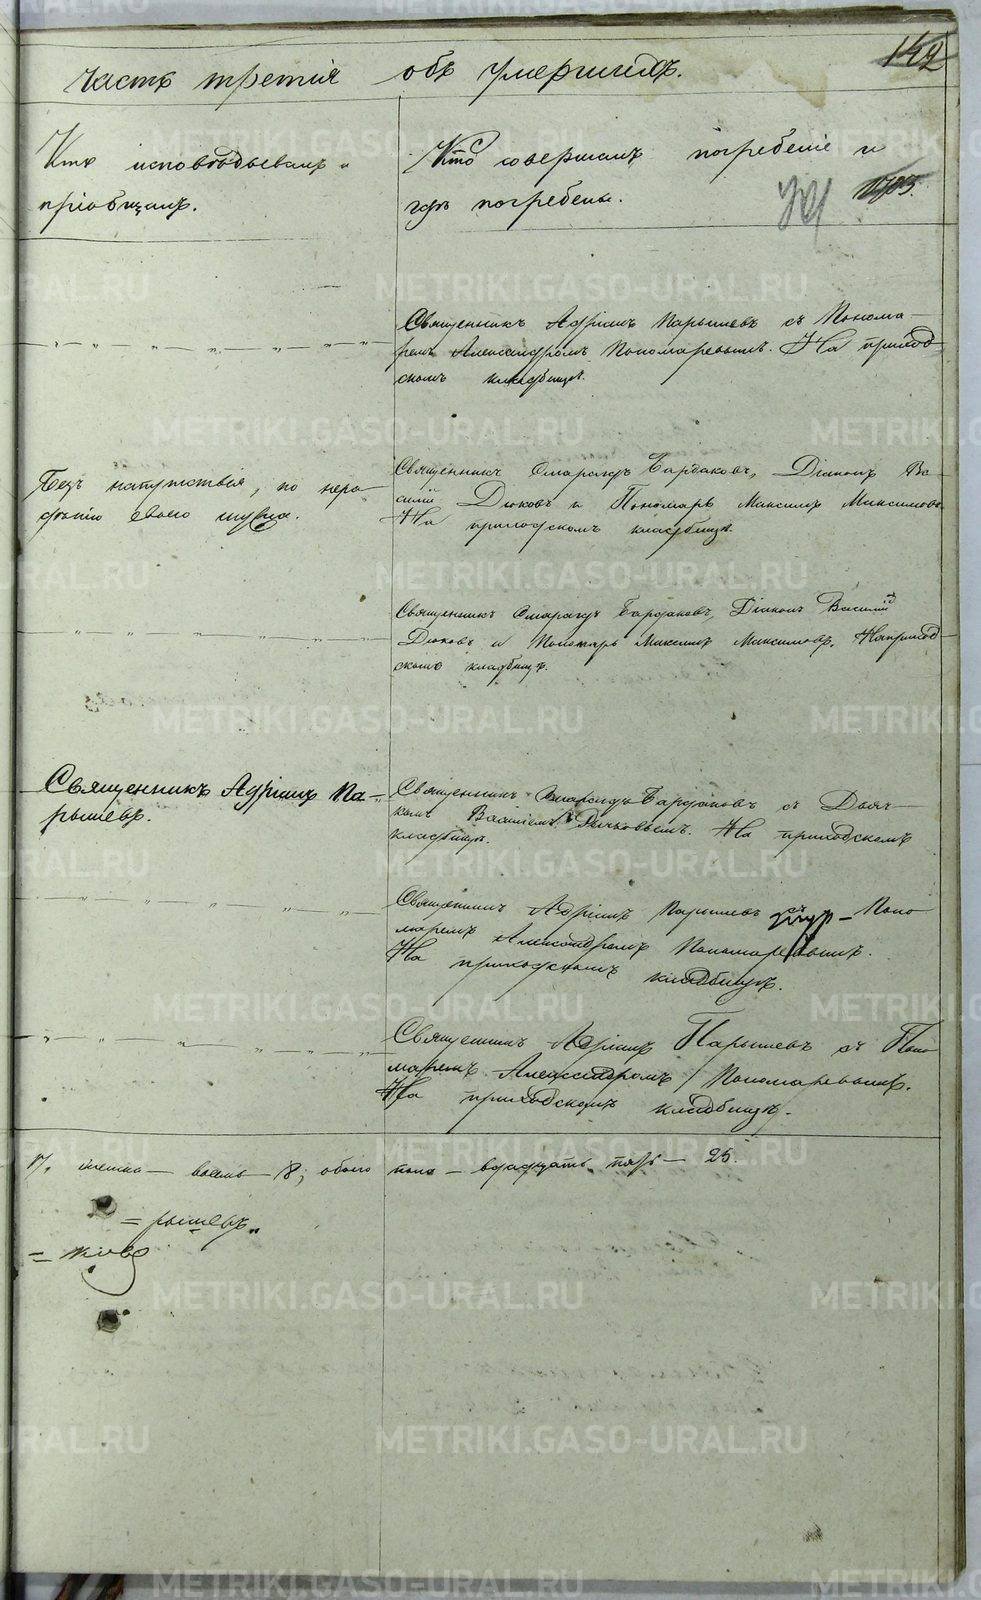 142
часть третія объ умершихъ.
Кто исповѣдывалъ и
пріобщалъ.
Кто совершалъ погребеніе и
гдѣ погребены.
Священникъ Адріанъ Парышевъ съ Понома-
ремъ Александромъ Пономаревымъ. На приход
скомъ кладбищѣ.
Безъ напутствія, по нера
дѣнію своего мужа.
Священникъ Смарагдъ Бардаковъ, Діаконъ Ва
силій Дюковъ и Пономарь Максимъ Максимовъ.
На приходскомъ кладбищѣ.
Священникъ Смарагдъ Бардаковъ, Діаконъ Василій
Дюковъ и Пономарь Максимъ Максимовъ. На приход-
скомъ кладбищѣ.
Священникъ Адріанъ Па-
рышевъ.
Священникъ Смарагдъ Бардаковъ съ Дьяч-
комъ Василіемъ На приходскомъ
кладбищѣ.
Священникъ Адріанъ Парышевъ съ Поно
маремъ Александромъ Пономаревымъ.
На приходскомъ кладбищѣ.
Священникъ Адріанъ Парышевъ съ Поно
маремъ Александромъ Пономаревымъ.
На приходскомъ кладбищѣ.
17, женска – восемь – 8; обоего пола – двадцать пять – 25.
= рышевъ.
= ковъ
METRIKI.GASO-URAL.RU